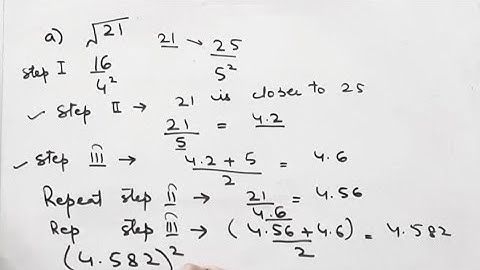 a) √21 21 → 25
Step I 16 5²
4²
✓ Step II → 21 is closer to 25
21/5 = 4.2
✓ Step III → (4.2 + 5)/2 = 4.6
Repeat Step II → 21/4.6 = 4.56
Rep Step III → (4.56 + 4.6)/2 = 4.582
(4.582)²